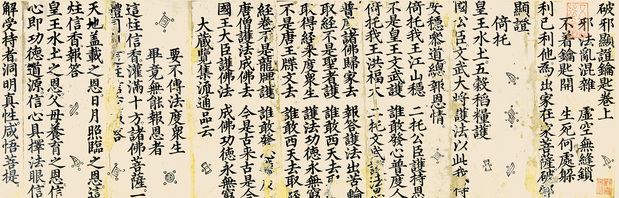 破邪顯證鑰匙卷上
邪法亂混雜 虛空無縫鎖
不著鑰匙開 生死何處躲
利己利他為出家在家菩薩破邪
顯證
倚托
皇王水土五穀稻糧護
國公臣文武大將護法以此我得
安穩參道總報恩情
倚托我王江山穩 二托公臣護持恩
不是皇王文武護 誰敢發心普度人
倚托我王洪福大 二托文武護法恩
普度諸佛歸家去 報答護法出苦輪
取經不是聖者護 誰敢西天去取經
取得經來度眾生 護法功德永無窮
不是唐王牒文去 誰敢西天去取經
經卷不是龍牌護 誰敢發心
唐僧護法成佛去 是古來古是今
國王大臣護佛法 成佛功德永無窮
大藏覽集流通品云
要不傳法度眾生
畢竟無能報恩者
這炷信香灌滿十方諸佛菩薩一
體
天地蓋載之恩日月照臨之恩這
炷信香報答
皇王水土之恩父母養育之恩信
心即功德道源信心具擇法眼信
解受持者洞明真性咸悟菩提